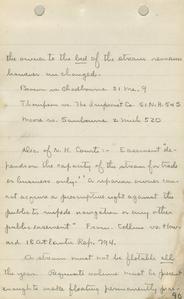 the owner to the bed of the stream remains
however unchanged.
Brown vs Chadbourne 31 Me. 9
Thompson vs The Improvt Co. 51 N.H. 545
Moore vs Sanbourne 2 Mich 520
Dec. of N.H. Courts:- "Easement "de-
pends on the capacity of the stream for trade
or business only." "A riparian owner can
not acquire a prescriptive right against the
public to impede navigation or any other
public easement" From Collins vs How-
ard. 18 Atlantic Rep. 794.
A stream must not be flotable all
the year. Requisite volume must be present
enough to make floating permanently prac-
90